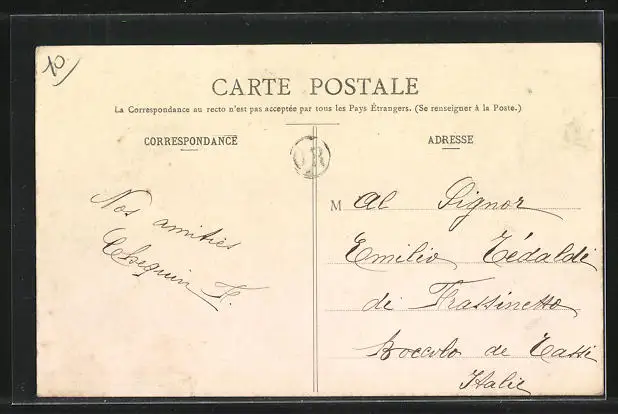 10
CARTE POSTALE
La Correspondance au recto n'est pas acceptée par tous les Pays Étrangers. (Se renseigner à la Poste.)
CORRESPONDANCE
Nos amitiés
Chequin F.
ADRESSE
M Al Signor
Emilio Tédaldi
de Frassinetto
Boccolo de Tassi
Italie